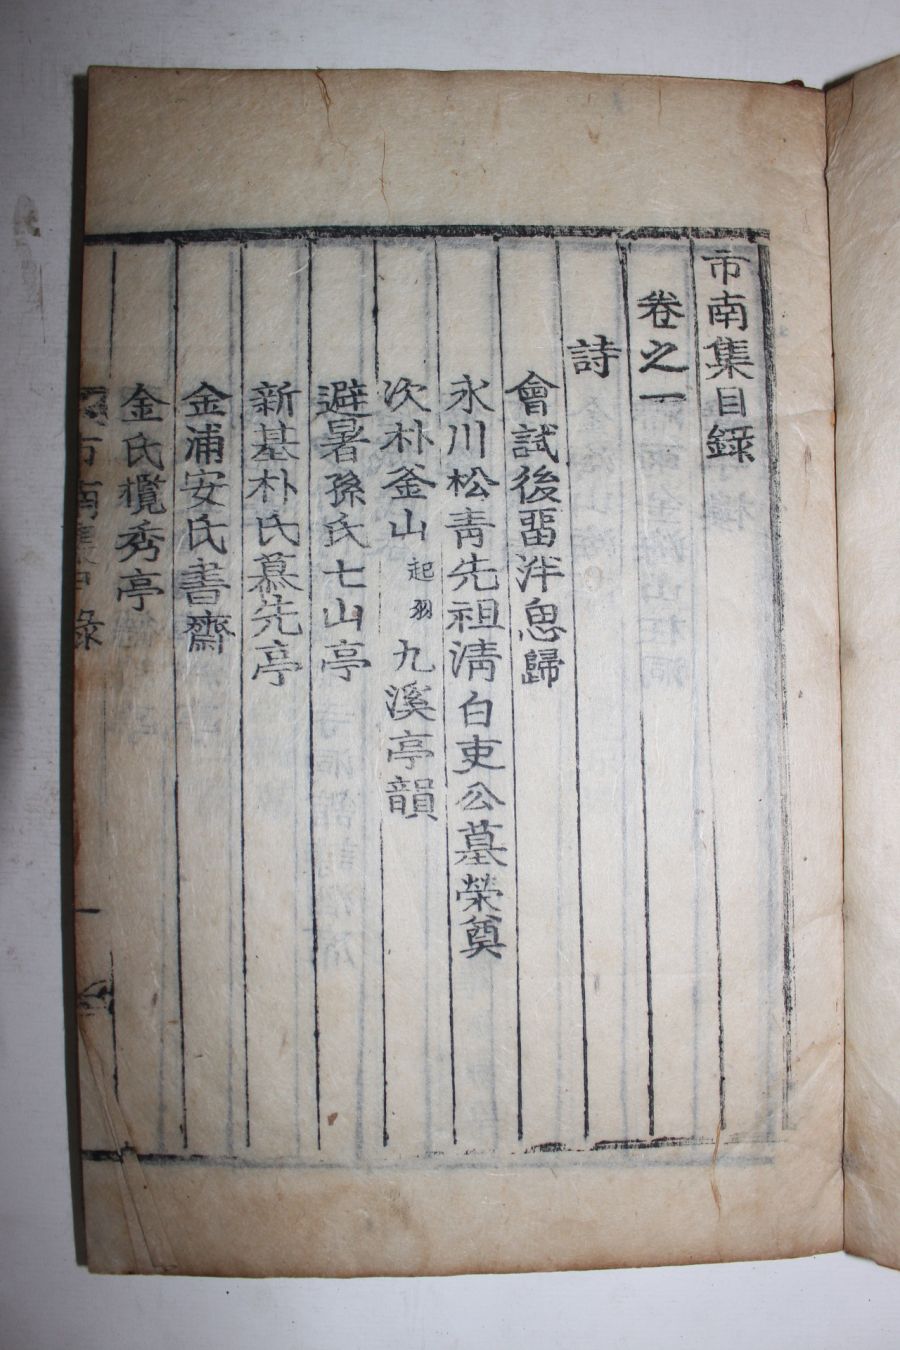 市南集目録
卷之一
詩
會試後畱泮思歸
永川松青先祖淸白吏公墓榮奠
次朴釜山起羽九溪亭韻
避暑孫氏七山亭
新基朴氏慕先亭
金浦安氏書齋
金氏攬秀亭
市南集目録
一